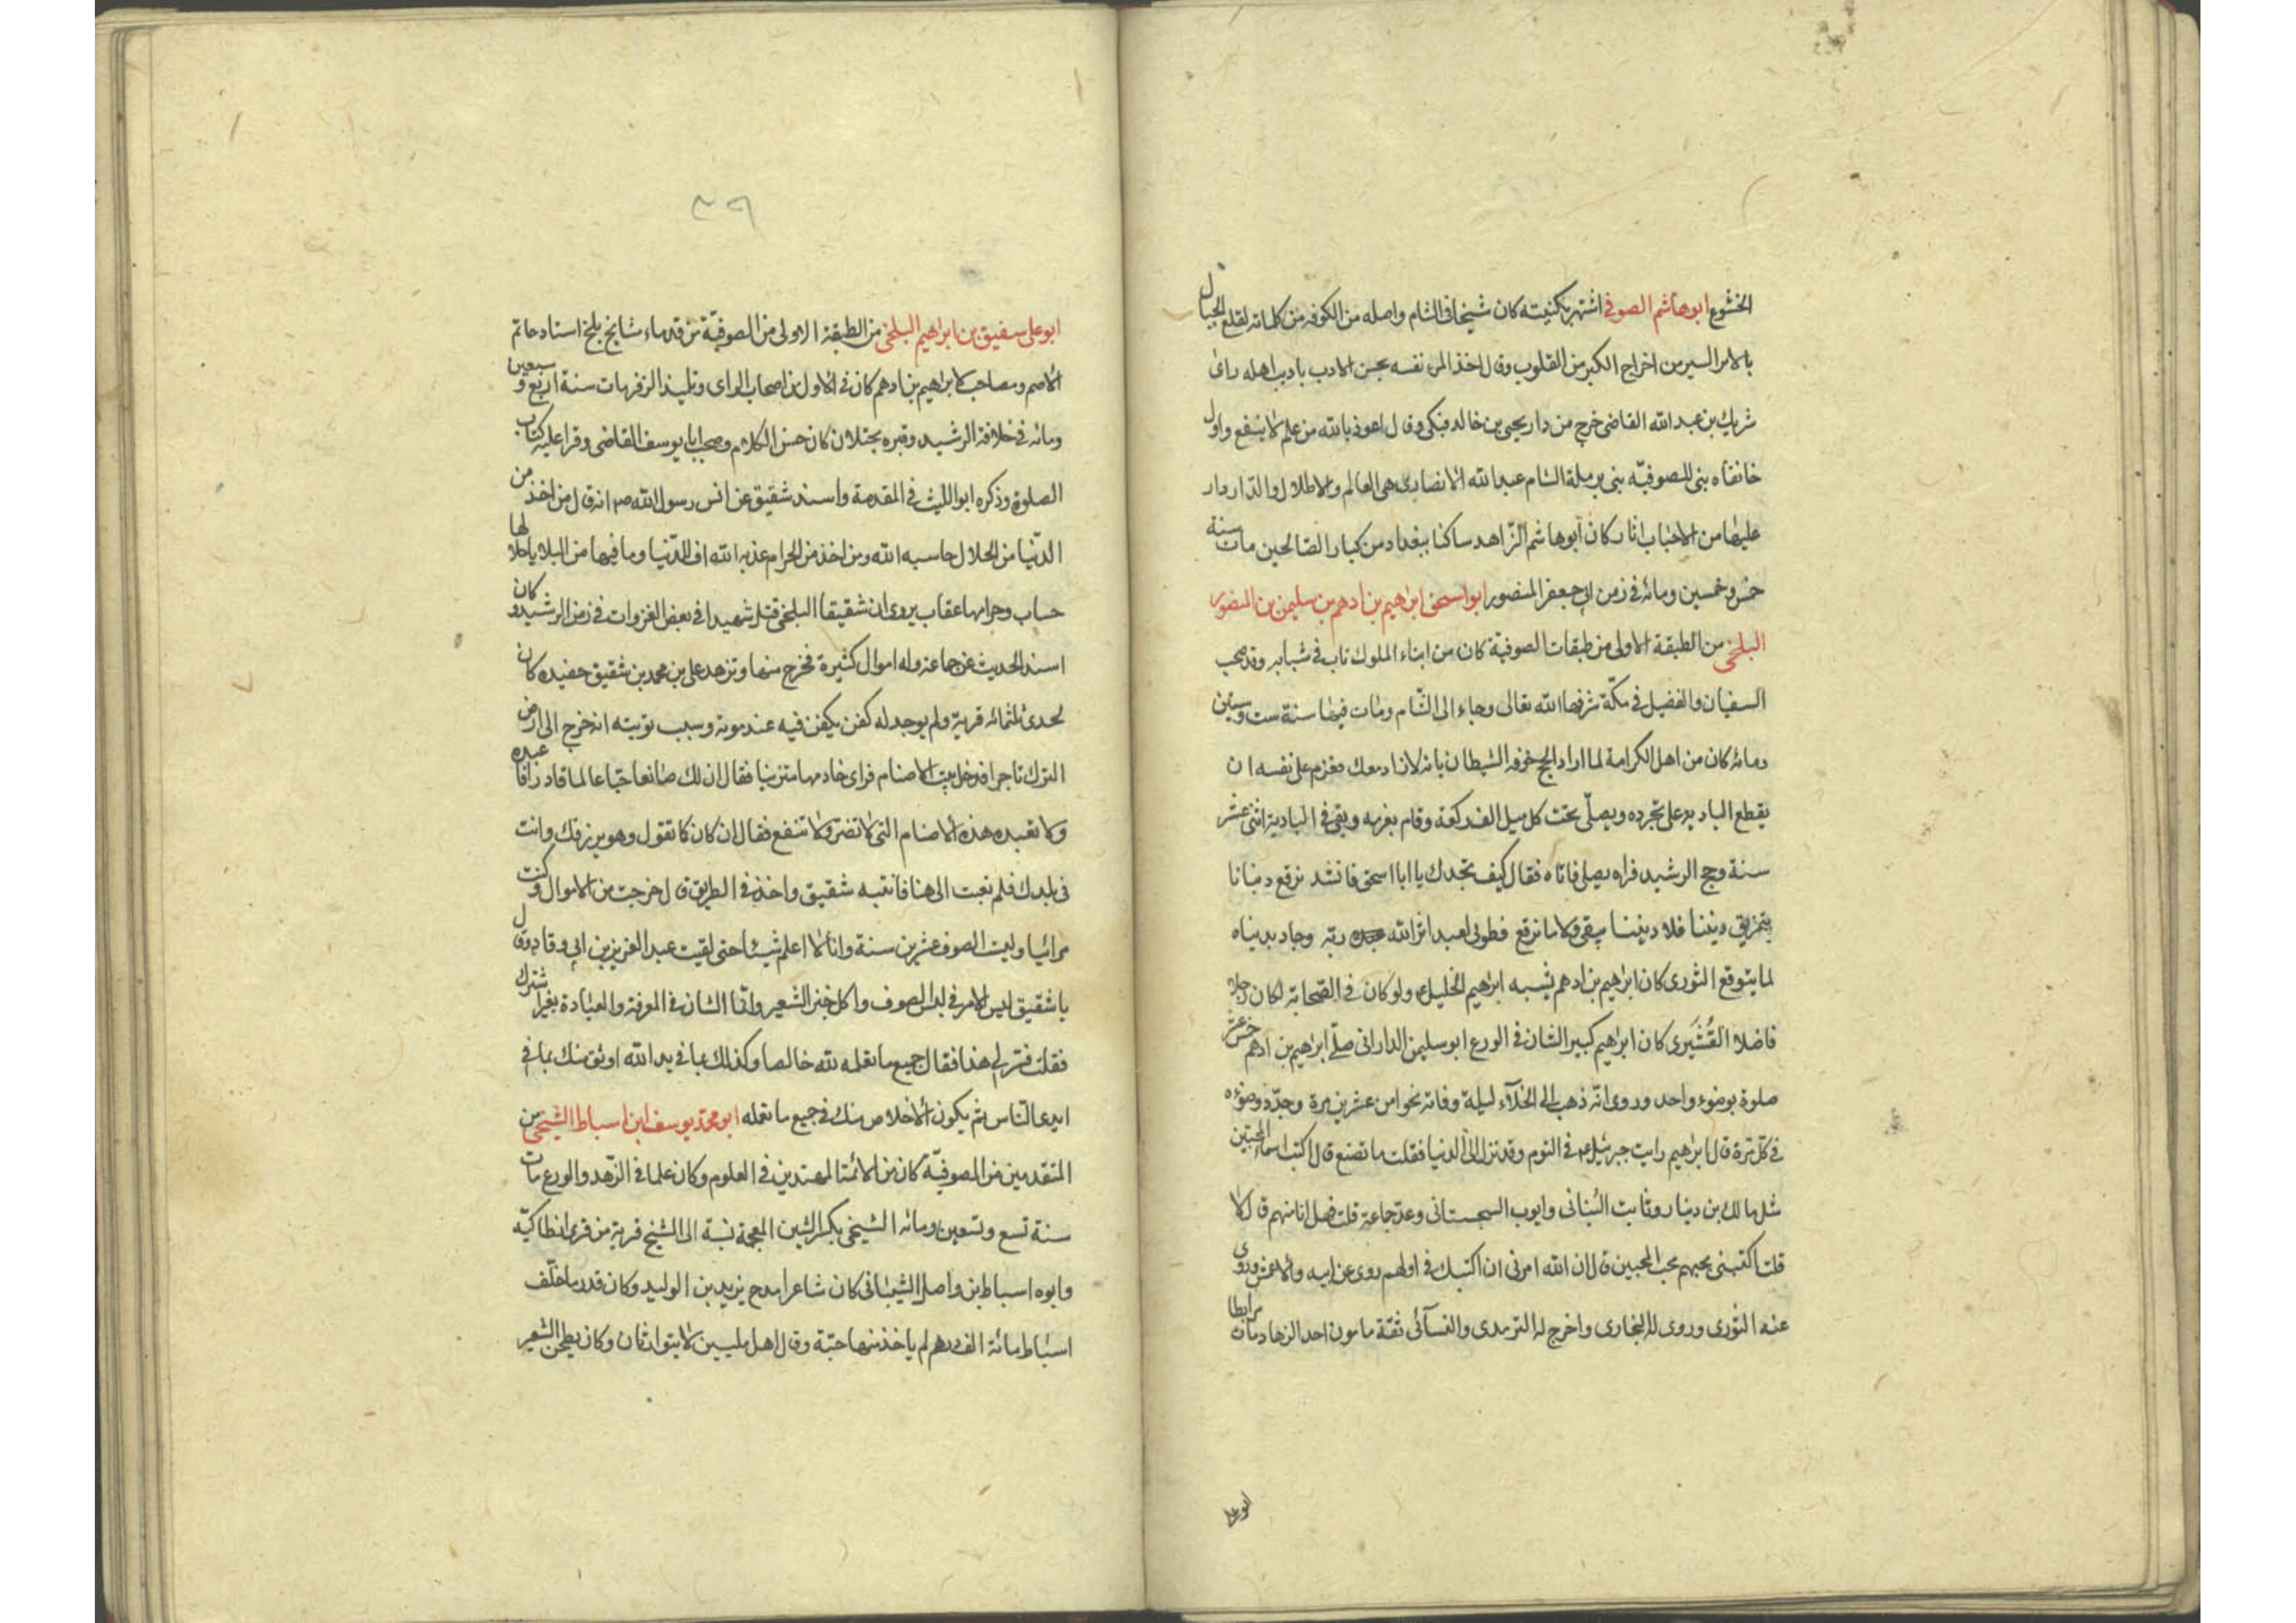 الخشوع ابوهاشم الصوفى اشتهر بكنيته كان شيخا فى الشام واصله من الكوفه من كلماته لقلع الجبال
بالابر السير من اخراج الكبر من القلوب وقال اخذ المرء نفسه بحسن الادب باديب اهله راى
شريك بن عبد الله القاضى خرج من دار يحيى بن خالد فبكى وقال اعوذ بالله من علم لا ينفع واول
خانقاه بنى للصوفيّه بنى برملة الشام عبد الله الانصارى هى العالم والاطلال والدار دار
عليها من الاحباب اثار كان ابوهاشم الزّاهد ساكنا ببغداد من كبار الصالحين مات سنة
خمس وخمسين ومائه فى زمن ابى جعفر المنصور ابواسحق ابراهيم بن ادهم بن سليمن بن المنصور
البلخى من الطبقة الاولى من طبقات الصوفيّة كان من ابناء الملوك تاب فى شبابه وقد صحب
السفيان والفضيل فى مكّة شرفها الله تعالى وجاء الى الشّام ومات فيها سنة ست وستين
ومائه كان من اهل الكرامة لما اراد الحج خوفه الشيطان بانه لا زاد معك فعزم على نفسه ان
يقطع الباديه على تجرده ويصلّى تحت كل ميل الف ركعة وقام بعزمه وبقى فى البادية اثنى عشر
سنة وحج الرشيد فراه يصلى فاتاه فقال كيف تجدك يا ابا اسحق فانشد نرقع دنيانا
بتمزيق ديننا فلا ديننا يبقى ولا ما نرقع فطوبى لعبد اثر الله ربّه وجاد بدنياه
لما يتوقع الثورى كان ابراهيم بن ادهم يشبه ابراهيم الخليل ولو كان فى الصّحابة لكان رجلا
فاضلا القُشَيرى كان ابراهيم كبير الشان فى الورع ابو سليمن الدارانى صلّى ابراهيم بن ادهم خمس عشر
صلوة بوضوء واحد وروى انّه ذهب الى الخلآء ليلة وفاته نحوا من عشرين مرة وجدّد وضوءه
فى كلّ مرّة قال ابراهيم رايت جبرئيل عم فى النوم وقد نزل الى الدنيا فقلت ما تصنع قال اكتب اسماء المحبّين
مثل مالك بن دينار وثابت البُنانى وايوب السجستانى وعدّ جماعة قلت فهل انا منهم قال لا
قلت اكتبنى بحبهم محب المحبين قال ان الله امرنى ان اكتبك فى اولهم روى عن ابيه والاعمش وروى
عنه الثورى وروى له البخارى واخرج له الترمدى والنسآئى ثقة مامون احد الزهاد مات مرابطا
ابو على
٣٩
ابو على سفيق بن ابراهيم البلخى من الطبقة الاولى من الصوفيّة من قدماء مشايخ بلخ استاد حاتم
الاصم ومصاحب لابراهيم بن ادهم كان فى الاول من اصحاب الراى وتلميذ الزفر مات سنة اربع وسبعين
ومائه فى خلافة الرشيد وقبره بختلان كان حسن الكلام وصحب ابا يوسف القاضى وقرا عليه كتاب
الصلوة وذكره ابو الليث فى المقدمة واسند شقيق عن انس رسول الله صم انه قال من اخذ من
الدّنيا من الحلال حاسبه الله ومن اخذ من الحرام عذبه الله اف للدّنيا وما فيها من البلايا حلالها
حساب وحرامها عقاب يروى ان شقيقا البلخى قتل شهيدا فى بعض الغزوات فى زمن الرشيد وكان
اسند الحديث عن جماعة وله اموال كثيرة فخرج منها وتزهد على بن محمد بن شقيق حفيده كان
لجدى ثلثمائه قرية ولم يوجد له كفن يكفن فيه عند موته وسبب توبته انه خرج الى ارض
الترك تاجرا فدخل بيت الاصنام فراى خادمها متزينا فقال ان لك صانعا حيّا عالما قادرا فاعبده
ولا تعبد هذه الاصنام التى لا تضر ولا تنفع فقال ان كان كما تقول وهو يرزقك وانت
فى بلدك فلم تعبت الى هنا فانتبه شقيق واخذ فى الطريق قال خرجت من الاموال وكنت
مرائيا ولبست الصوف عشرين سنة وانا لا اعلم شيئا حتى لقيت عبد العزيز بن ابى وقاد وقال
يا شقيق ليس الامر فى لباس الصوف واكل خبز الشعير وانّما الشان فى المعرفة والعبادة بغير شرك
فقلت فسّر لى هذا فقال جميع ما تعلمه لله خالصا وكذلك بما فى يد الله اوثق منك بما فى
ايدى النّاس ثم يكون الاخلاص منك فى جميع ما تعمله ابو محمّد يوسف ابن اسباط الشيخى من
المتقدمين من الصوفيّة كان من الائمّة المهتدين فى العلوم وكان علما فى الزّهد والورع مات
سنة تسع وتسعين ومائه الشيخى بكسر الشين المعجمة نسبة الى الشيخ قرية من قرى انطاكيّه
وابوه اسباط بن واصل الشيبانى كان شاعرا مدح يزيد بن الوليد وكان قدر ما خلّف
اسباط مائة الف درهم لم ياخذ منها حبّة وقال اهل ملتين لا يتوارثان وكان يطحن الشعير